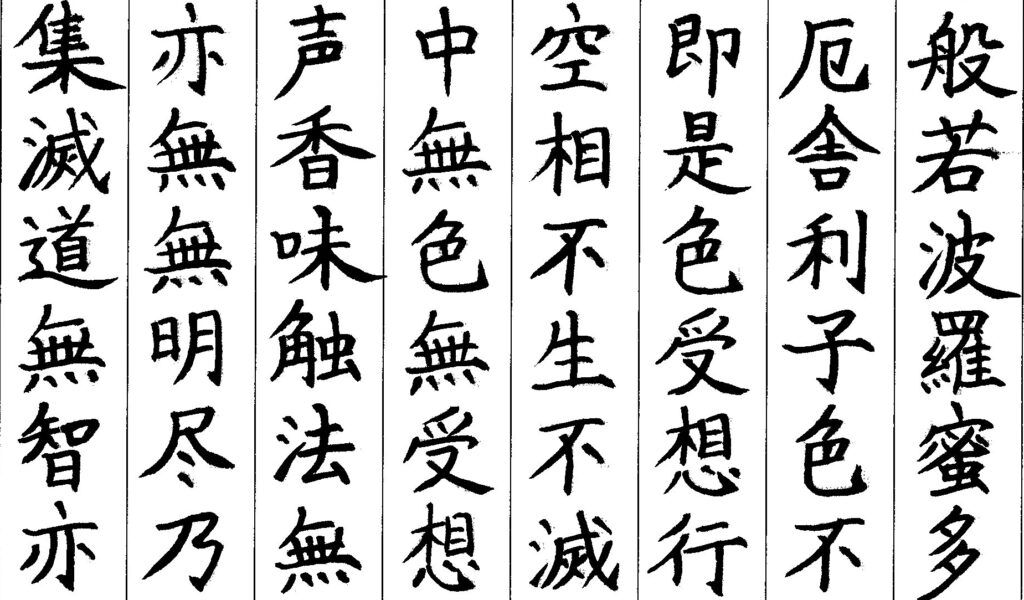 般若波羅蜜多
厄舎利子色不
即是色受想行
空相不生不滅
中無色無受想
声香味触法無
亦無無明尽乃
集滅道無智亦